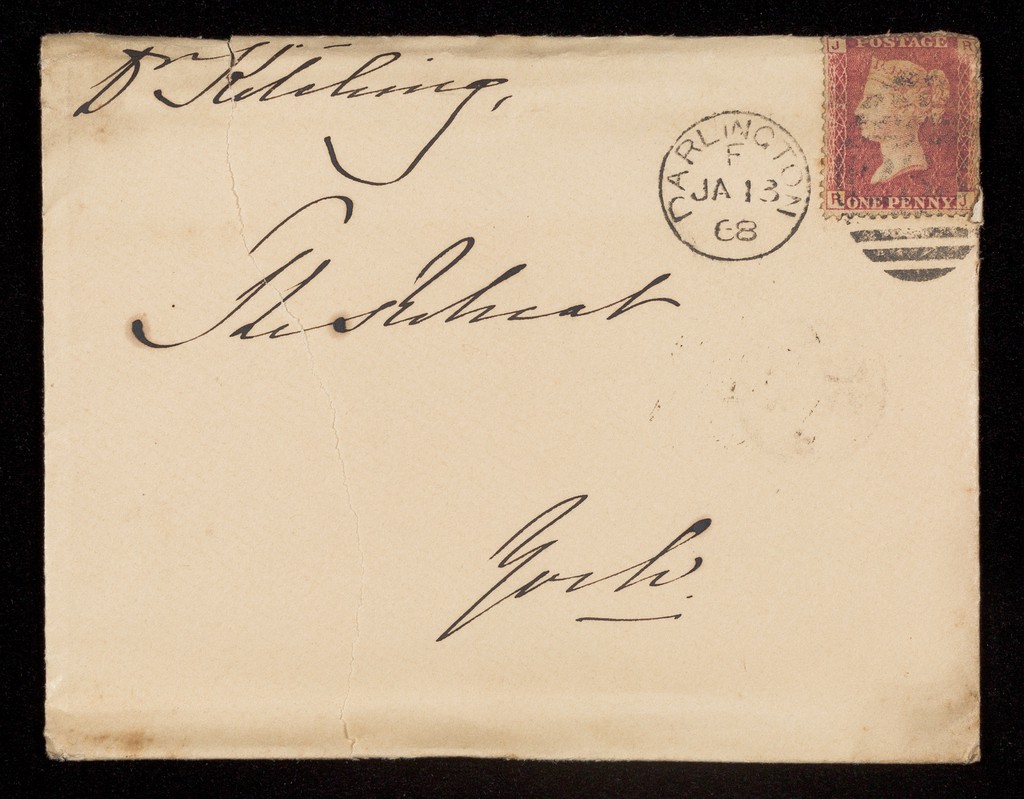 Dr Kitching,
J POSTAGE R
DARLINGTON
F
JA 13
68
R ONE PENNY J
The Retreat
York.